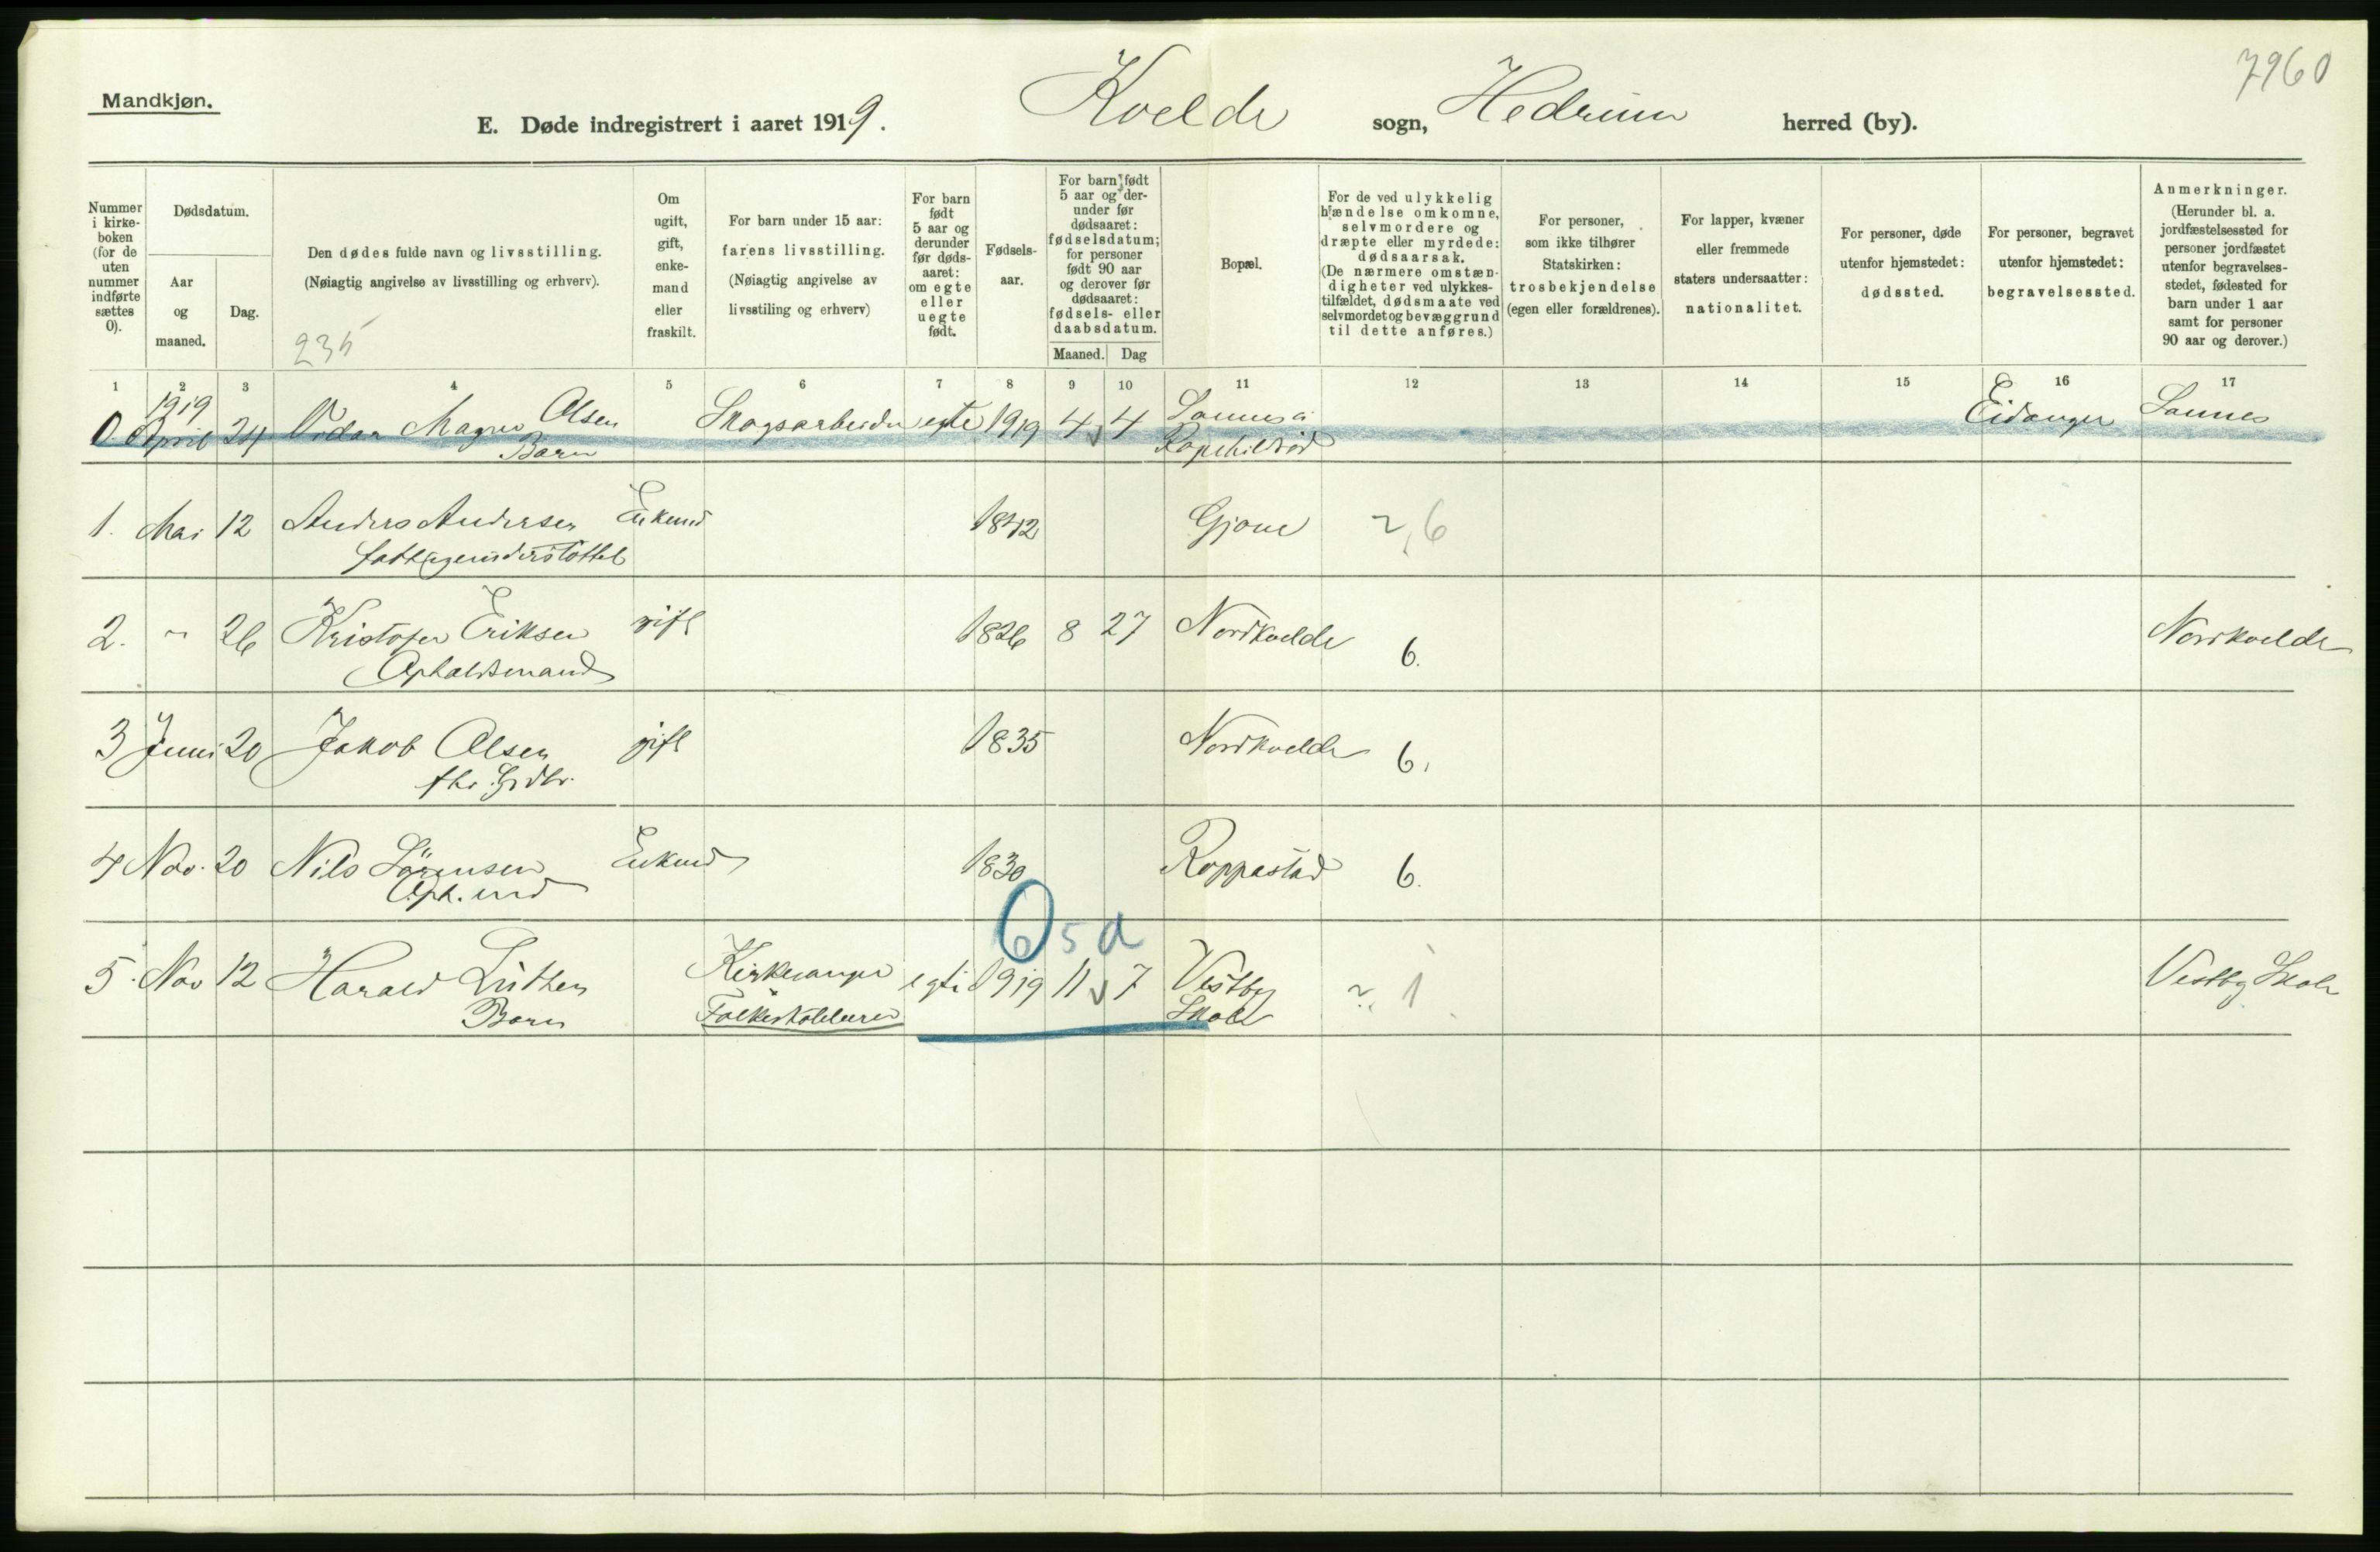 7960
Mandkjøn.
E. Døde indregistrert i aaret 1919. Kvelde sogn, Hedrum herred (by).
Nummer i kirke-boken (for de uten nummer indførte sættes 0).
Dødsdatum.
Aar og maaned.
Dag.
Den dødes fulde navn og livsstilling.
(Nøiagtig angivelse av livsstilling og erhverv).
235
Om ugift, gift, enke-mand eller fraskilt.
For barn under 15 aar:
farens livsstilling.
(Nøiagtig angivelse av livsstiling og erhverv)
For barn født 5 aar og derunder før døds-aaret: om egte eller uegte født.
Fødsels-aar.
For barn født 5 aar og der-under før dødsaaret: fødselsdatum; for personer født 90 aar og derover før dødsaaret: fødsels- eller daabsdatum.
Maaned. Dag
Bopæl.
For de ved ulykkelig hændelse omkomne, selvmordere og dræpte eller myrdede: dødsaarsak.
(De nærmere omstæn-digheter ved ulykkes-tilfældet, dødsmaate ved selvmordet og bevæggrund til dette anføres.)
For personer, som ikke tilhører Statskirken: trosbekjendelse (egen eller forældrenes).
For lapper, kvæner eller fremmede staters undersaatter: nationalitet.
For personer, døde utenfor hjemstedet: dødssted.
For personer, begravet utenfor hjemstedet: begravelsessted.
Anmerkninger.
(Herunder bl. a. jordfæstelsessted for personer jordfæstet utenfor begravelses-stedet, fødested for barn under 1 aar samt for personer 90 aar og derover.)
1 2 3 4 5 6 7 8 9 10 11 12 13 14 15 16 17
1919
0. April 24 Vidar Magne Olsen Skogsarbeider egte 1919 4 4 Sannes Eidanger Sannes
Barn
1. Mai 12 Anders Andersen Enkemd 1842 Gjone 6
fattigunderstøttet
2. " 26 Kristofer Eriksen gift 1826 8 27 Nordkvelde 6. Nordkvelde
Opholdsmand
3 Juni 20 Jakob Olsen gift 1835 Nordkvelde 6.
fhv. Grdbr.
4 Nov. 20 Nils Sörensen Enkemd 1830 Roppestad 6.
Oph. md
0 5 d
5. Nov 12 Harald Luther Kirkesanger egte 1919 11 7 Vestby 1 Vestby Skole
Barn Folkeskolelærer Skole